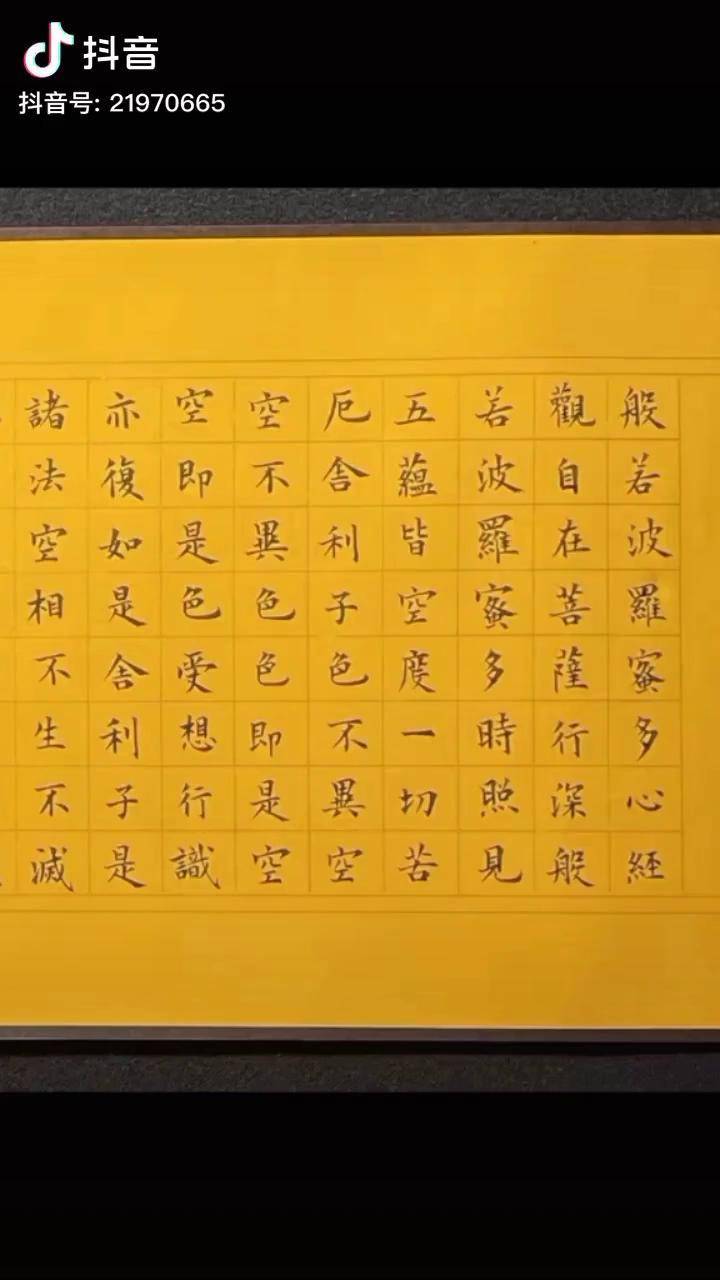 抖音
抖音号: 21970665
般若波羅蜜多心經
觀自在菩薩行深般
若波羅蜜多時照見
五蘊皆空度一切苦
厄舍利子色不異空
空不異色色即是空
空即是色受想行識
亦復如是舍利子是
諸法空相不生不滅